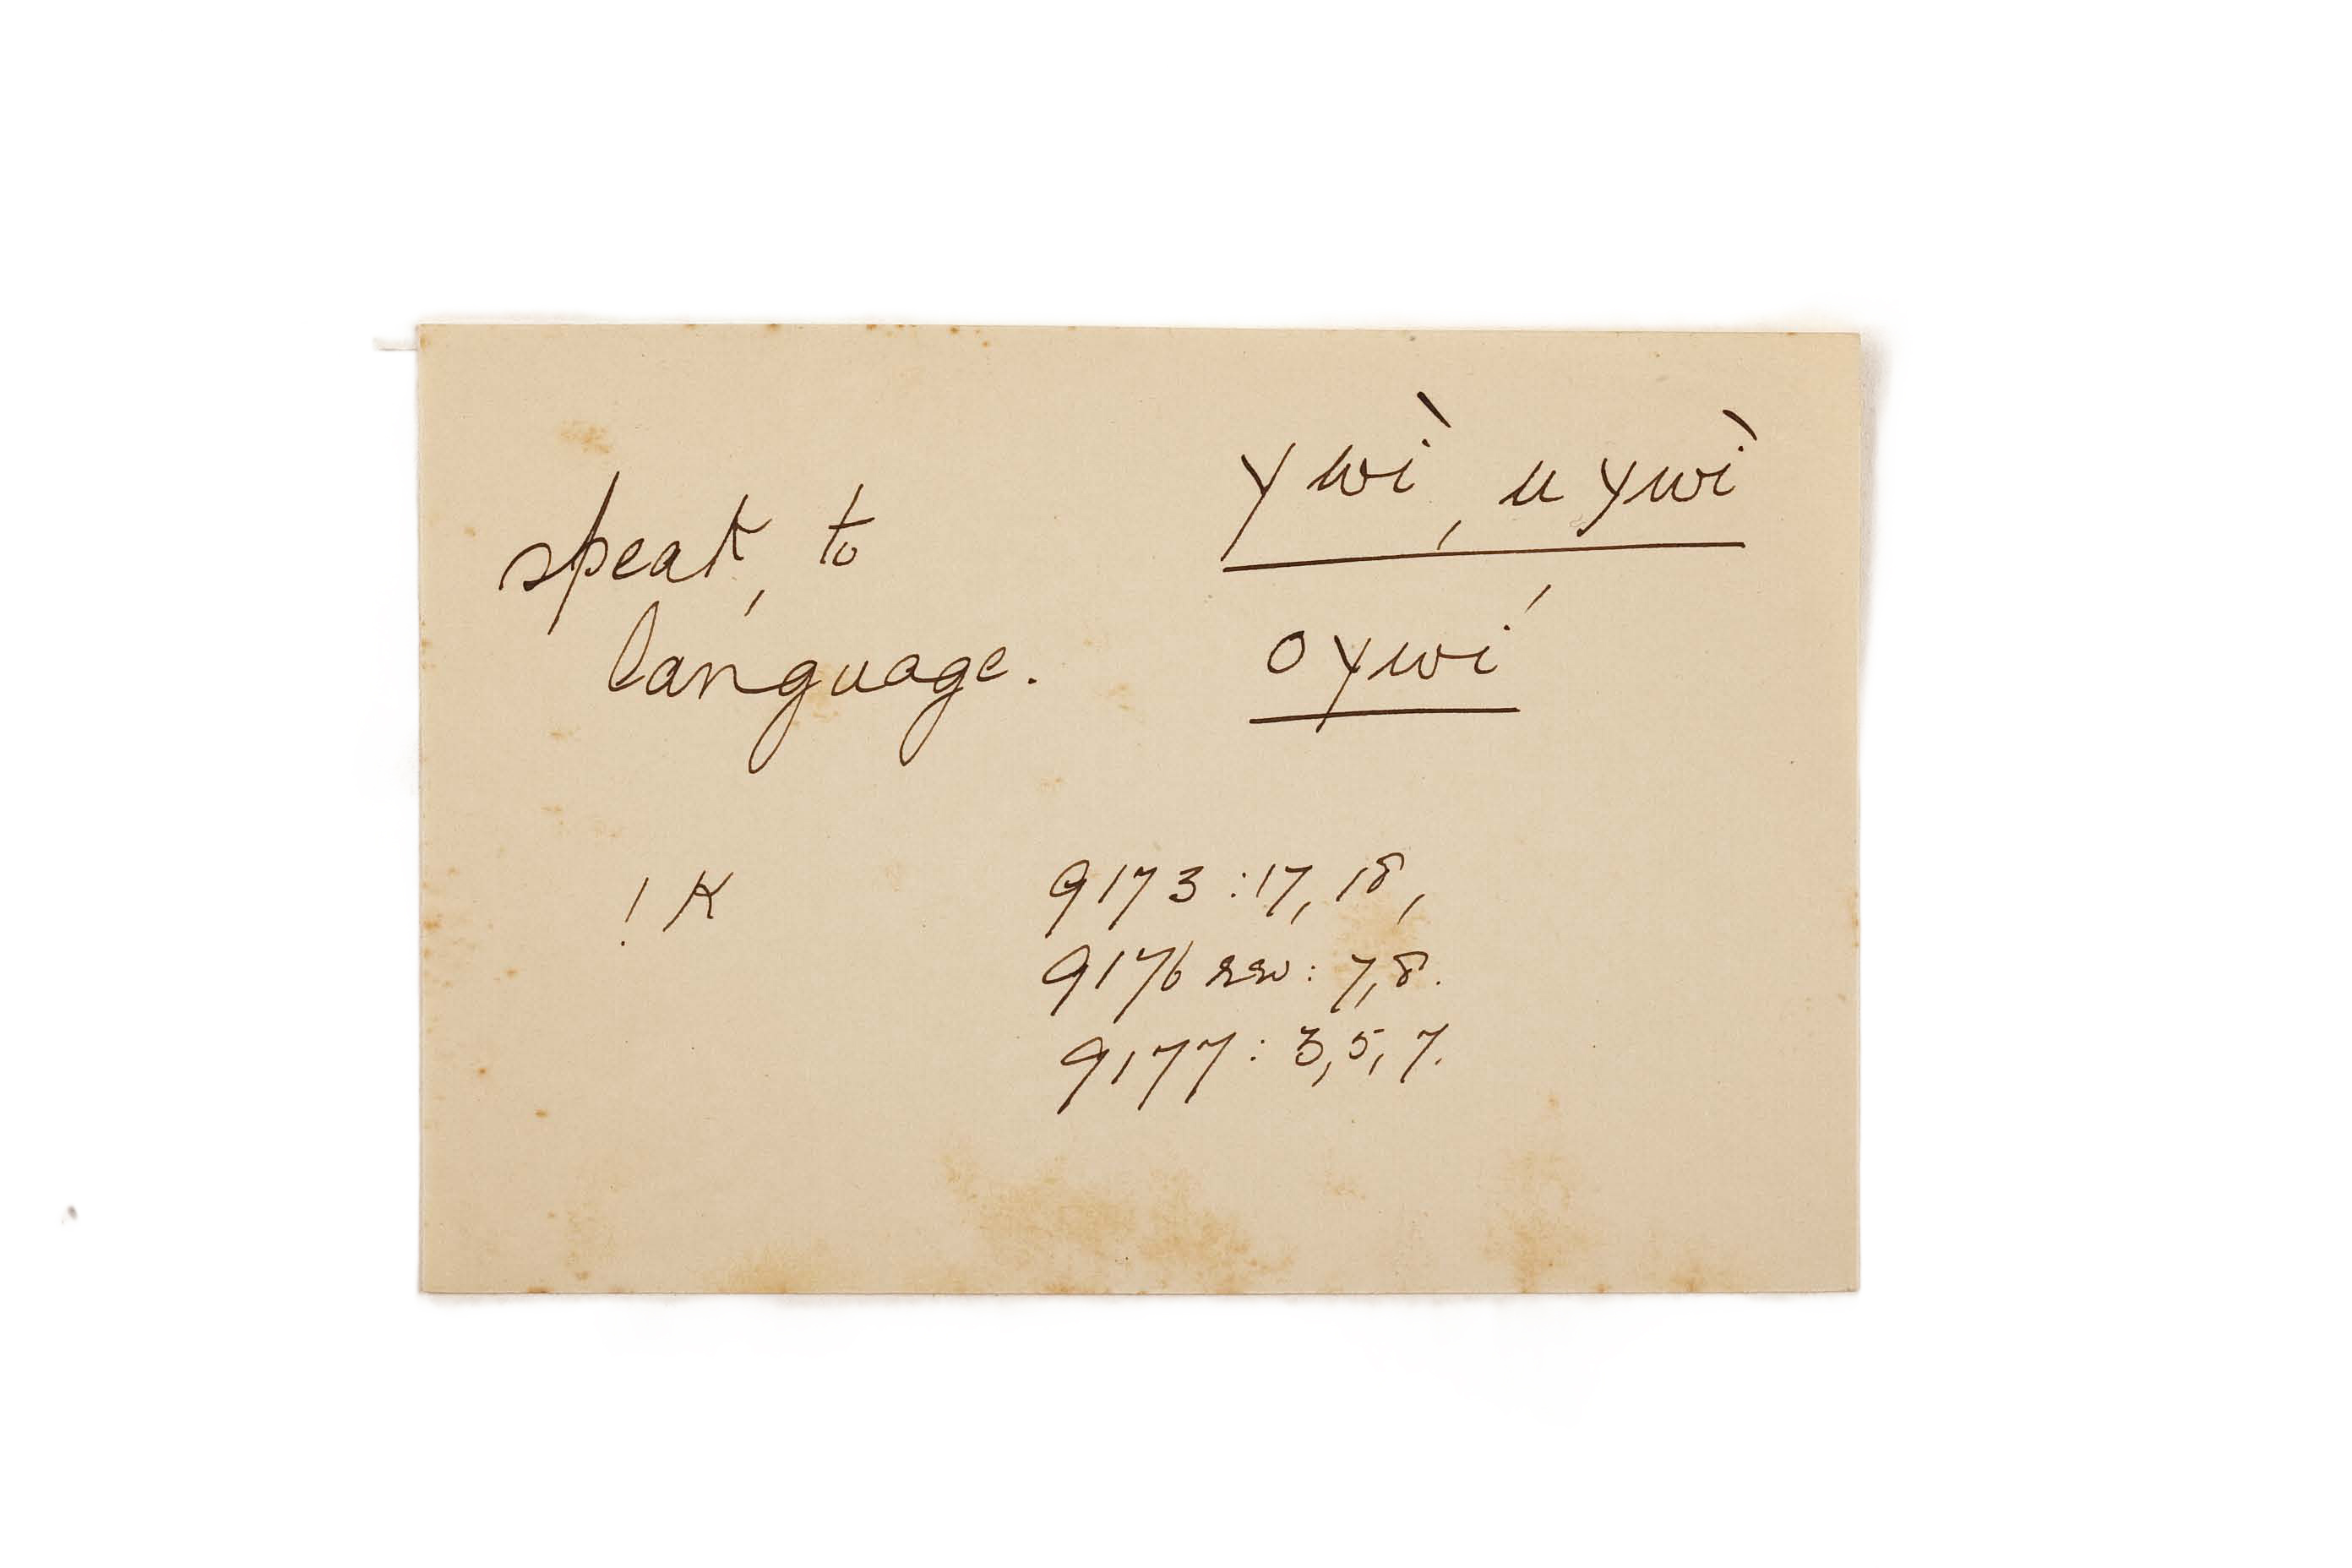 speak, to
language.
ywì, u ywì
o ywí
! K
9173 : 17, 18,
9176 rev : 7, 8.
9177 : 3, 5, 7.